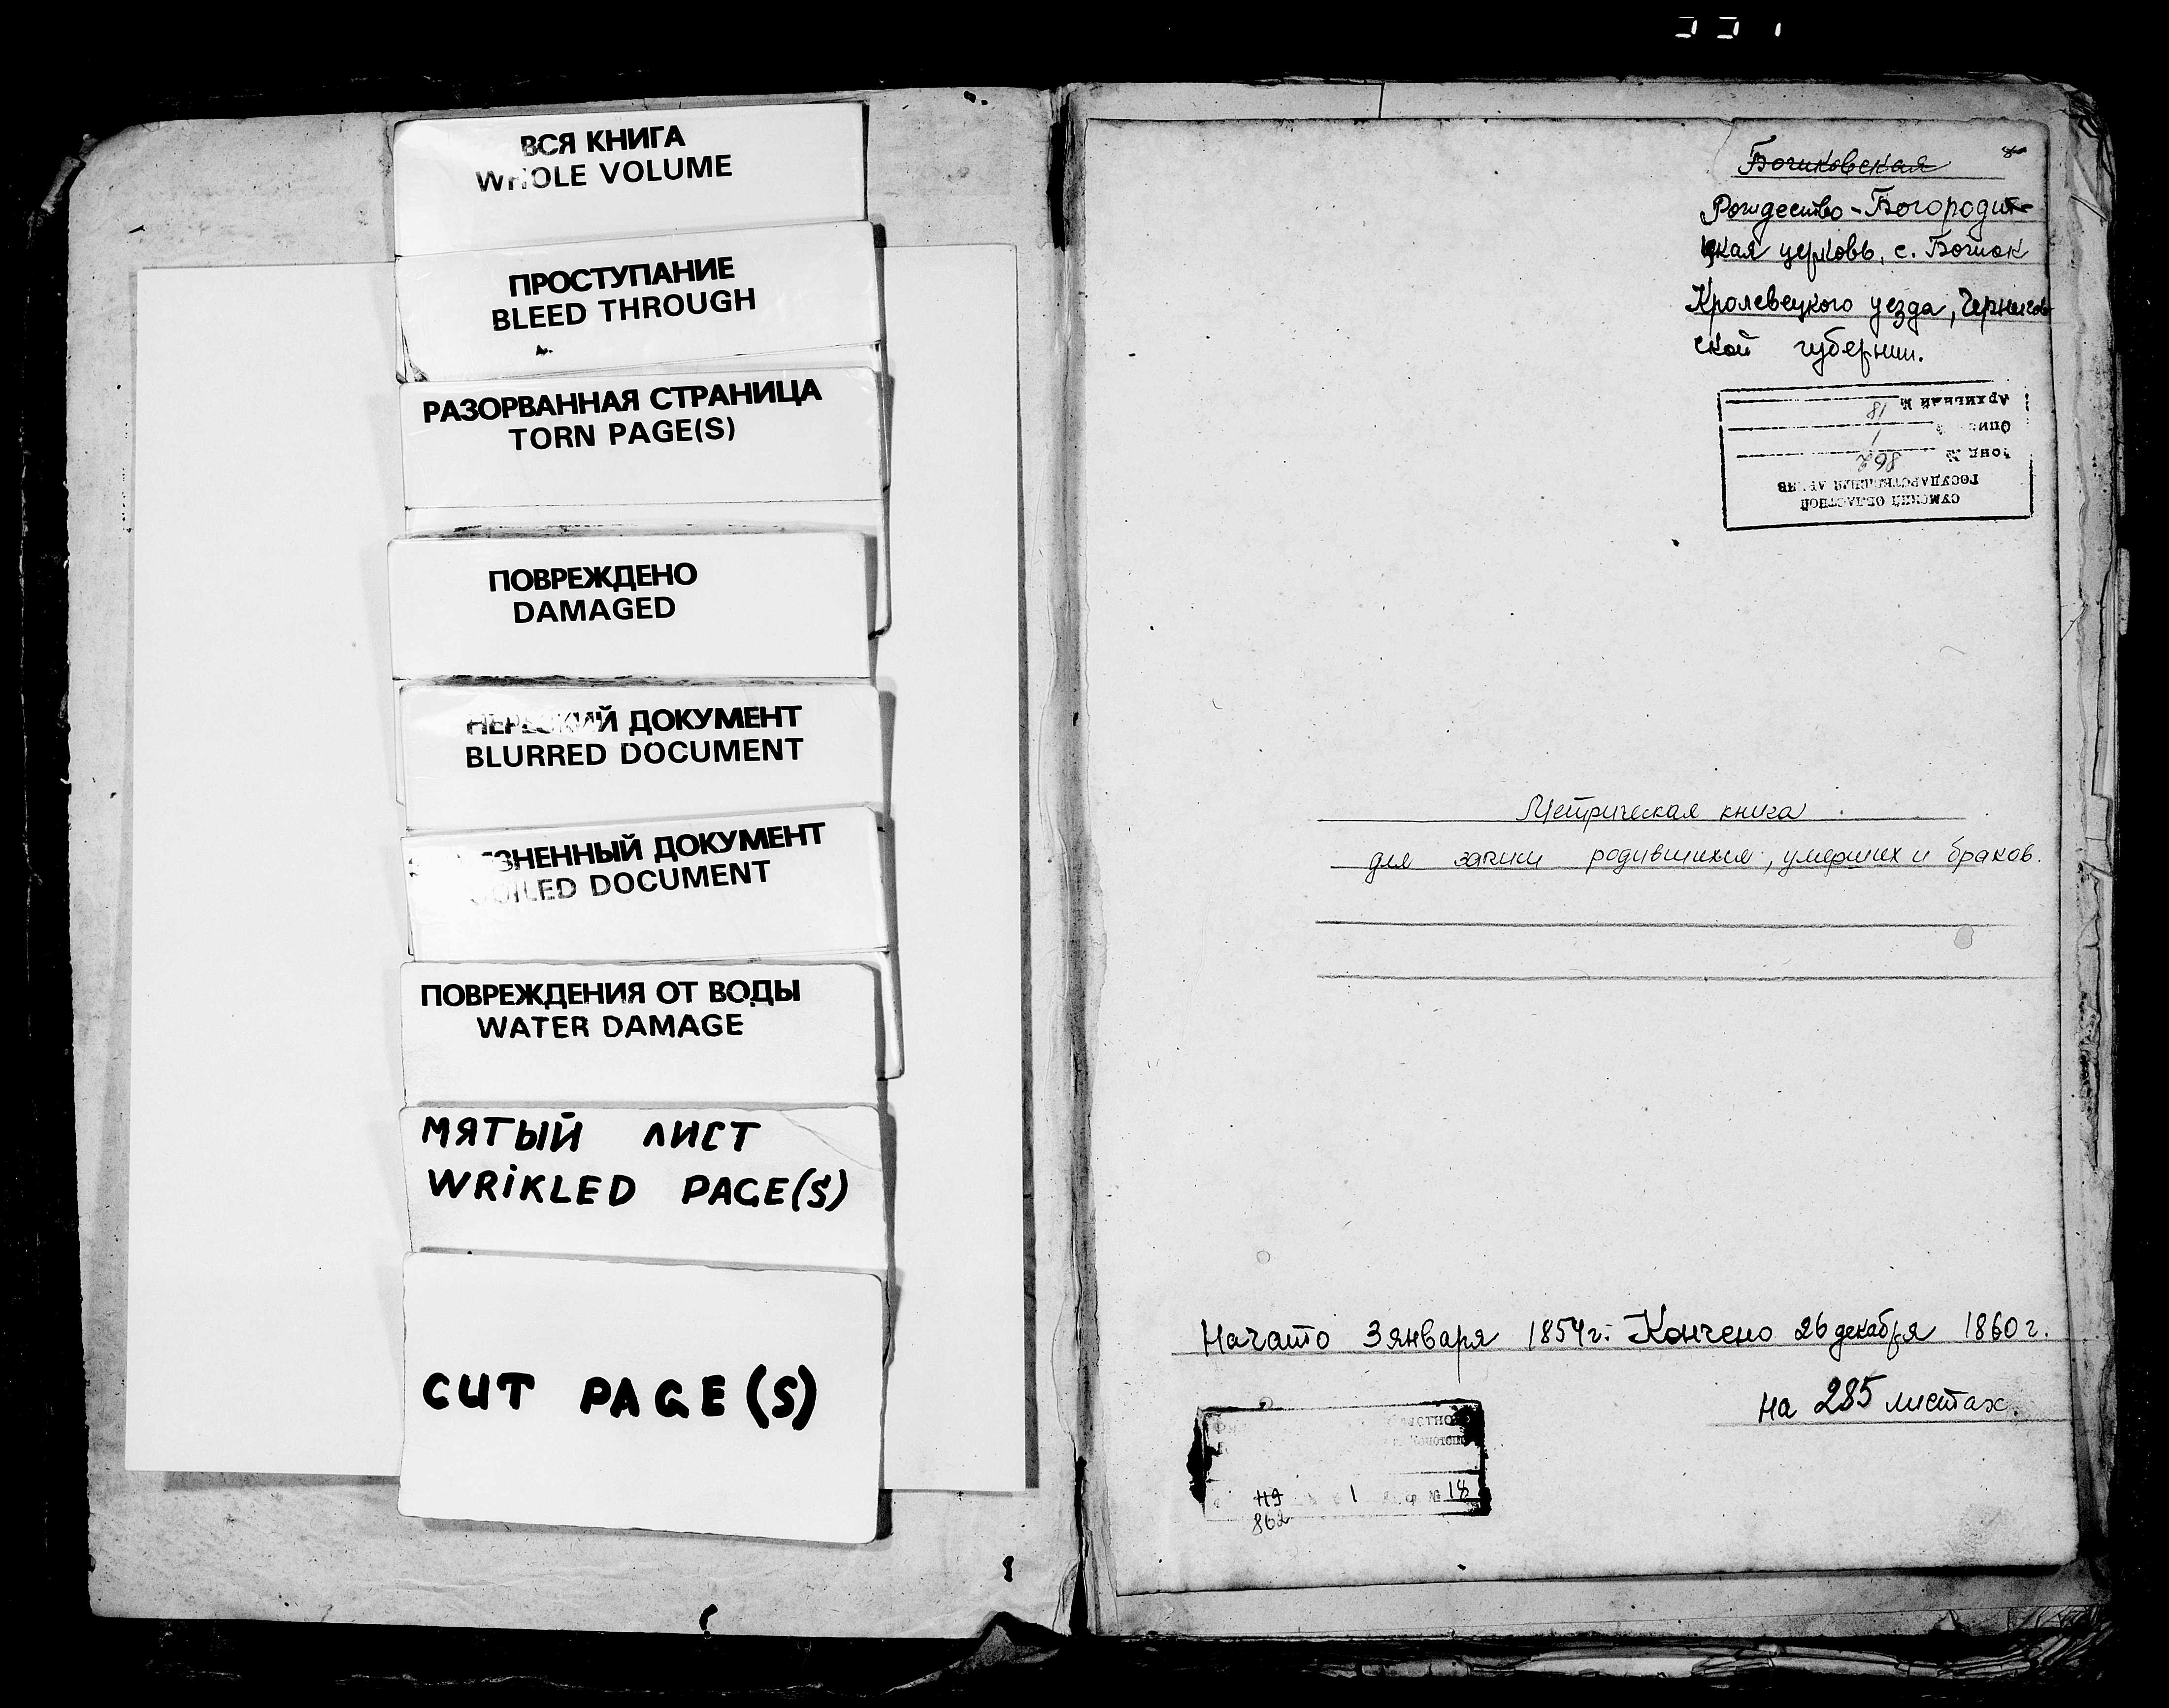 ВСЯ КНИГА
WHOLE VOLUME
ПРОСТУПАНИЕ
BLEED THROUGH
РАЗОРВАННАЯ СТРАНИЦА
TORN PAGE(S)
ПОВРЕЖДЕНО
DAMAGED
ДОКУМЕНТ
BLURRED DOCUMENT
ДОКУМЕНТ
DOCUMENT
ПОВРЕЖДЕНИЯ ОТ ВОДЫ
WATER DAMAGE
МЯТЫЙ ЛИСТ
WRIKLED PAGE(S)
CUT PAGE(S)
Рождество-Богородит-
цкая церковь, с. Бочек
Кролевецкого уезда, Чернигов
ской губернии.
Архивный № 18
Опись № 1
Фонд № 862
ГОСУДАРСТВЕННЫЙ АРХИВ
СУМСКИЙ ОБЛАСТНОЙ
Метрическая книга
для записи родившихся, умерших и браков.
Начато 3 января 1854 г. Кончено 26 декабря 1860 г.
на 285 листах.
119 1 № 18
862